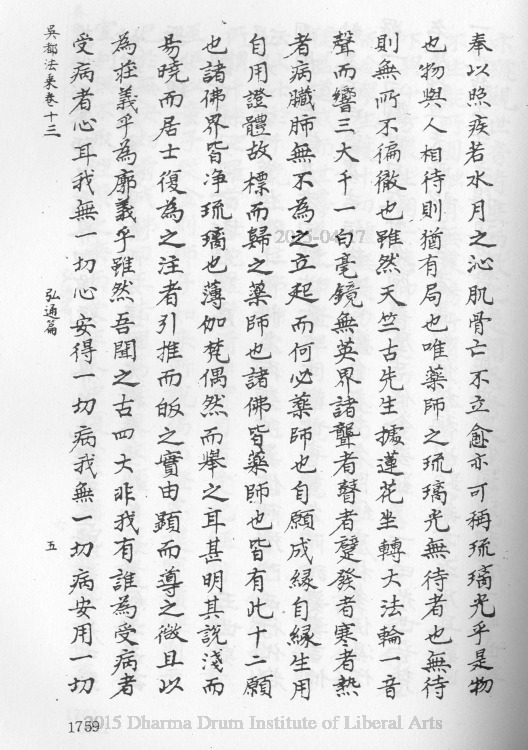 奉以照疾若水月之沁肌骨亡不立愈亦可稱琉璃光乎是物
也物與人相待則猶有局也唯藥師之琉璃光無待者也無待
則無所不徧徹也雖然天竺古先生據蓮花坐轉大法輪一音
聲而響三大千一白毫鏡無英界諸聾者瞽者躄發者寒者熱
者病臟肺無不為之立起而何必藥師也自願成緣自緣生用
自用證體故標而歸之藥師也諸佛皆藥師也皆有此十二願
也諸佛界皆淨琉璃也薄伽梵偶然而舉之耳甚明其說淺而
易曉而居士復為之注者引推而皈之實由顯而導之微且以
為莊義乎為廓義乎雖然吾聞之古四大非我有誰為受病者
受病者心耳我無一切心安得一切病我無一切病安用一切
吳都法乘卷十三
弘通篇
五
1759
2015 Dharma Drum Institute of Liberal Arts